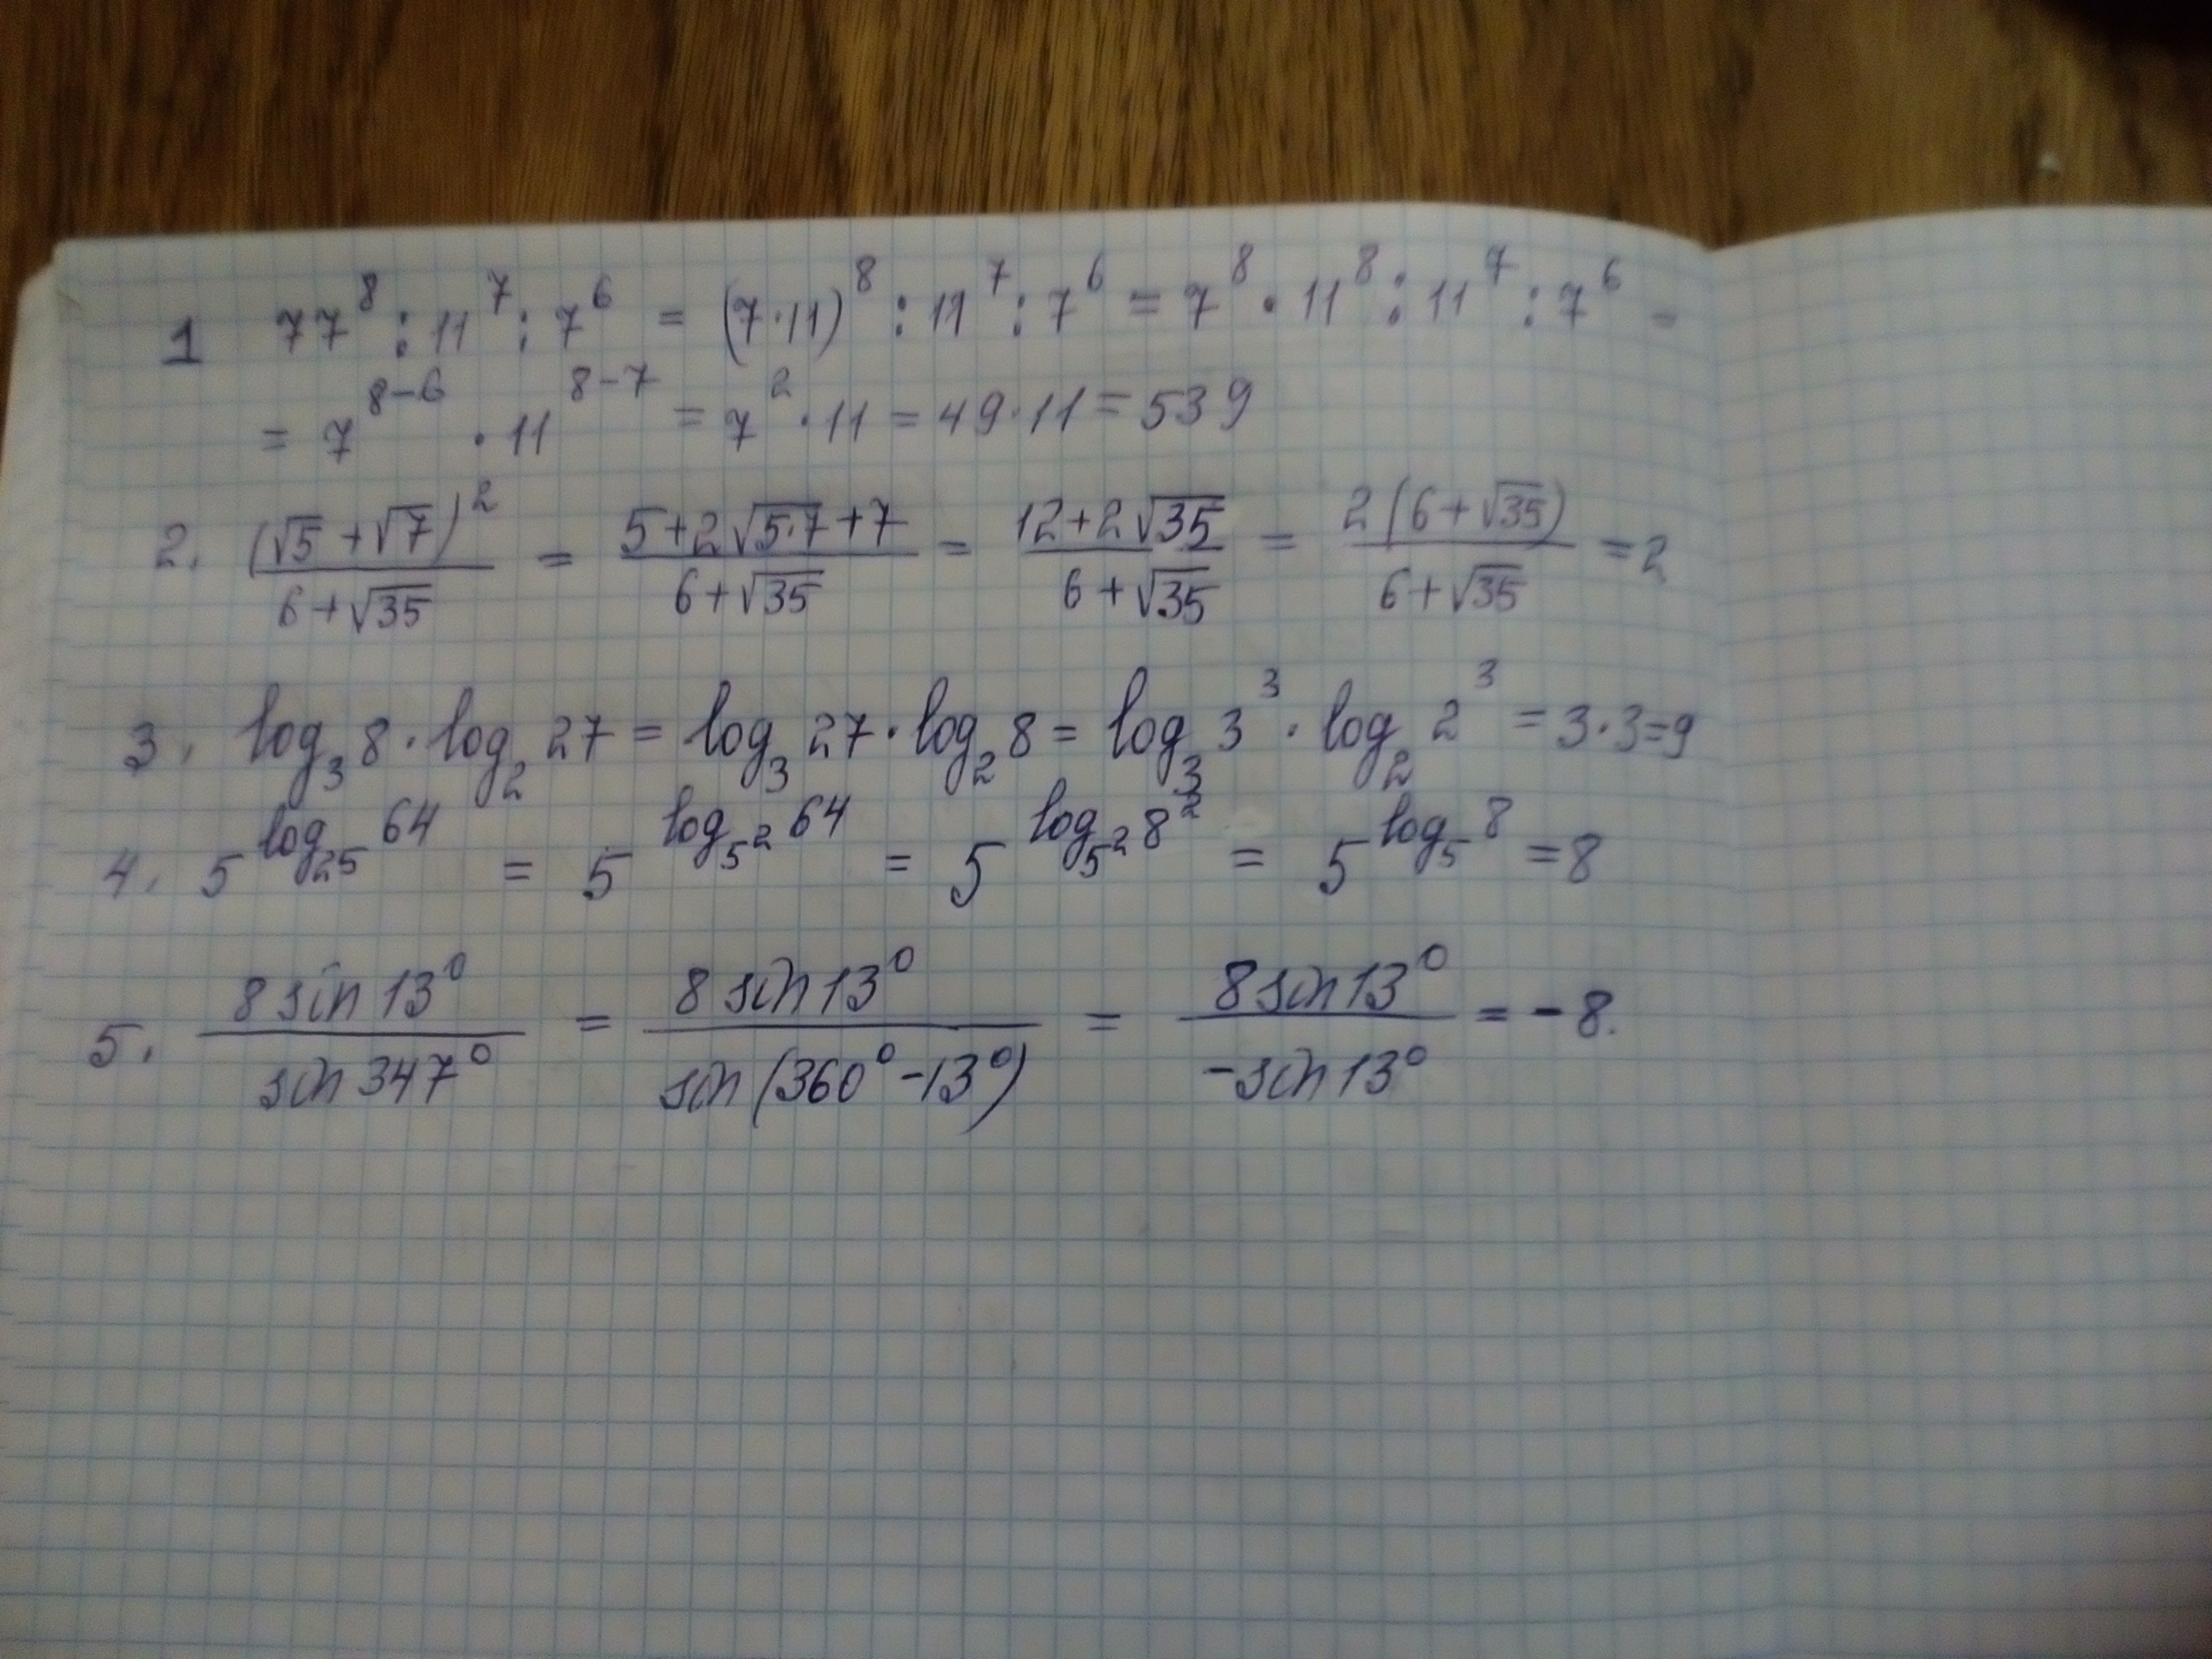 1 77⁸ : 11⁷ : 7⁶ = (7·11)⁸ : 11⁷ : 7⁶ = 7⁸ · 11⁸ : 11⁷ : 7⁶ =
= 7⁸⁻⁶ · 11⁸⁻⁷ = 7² · 11 = 49·11 = 539
2. (√5 + √7)² / (6+√35) = (5+2√5·7+7) / (6+√35) = (12+2√35) / (6+√35) = 2(6+√35) / (6+√35) = 2
3. log₃ 8 · log₂ 27 = log₃ 27 · log₂ 8 = log₃ 3³ · log₂ 2³ = 3·3=9
4. 5^(log₂₅ 64) = 5^(log_(5²) 64) = 5^(log_(5²) 8²) = 5^(log₅ 8) = 8
5. 8 sin 13° / sin 347° = 8 sin 13° / sin(360°-13°) = 8 sin 13° / -sin 13° = -8.